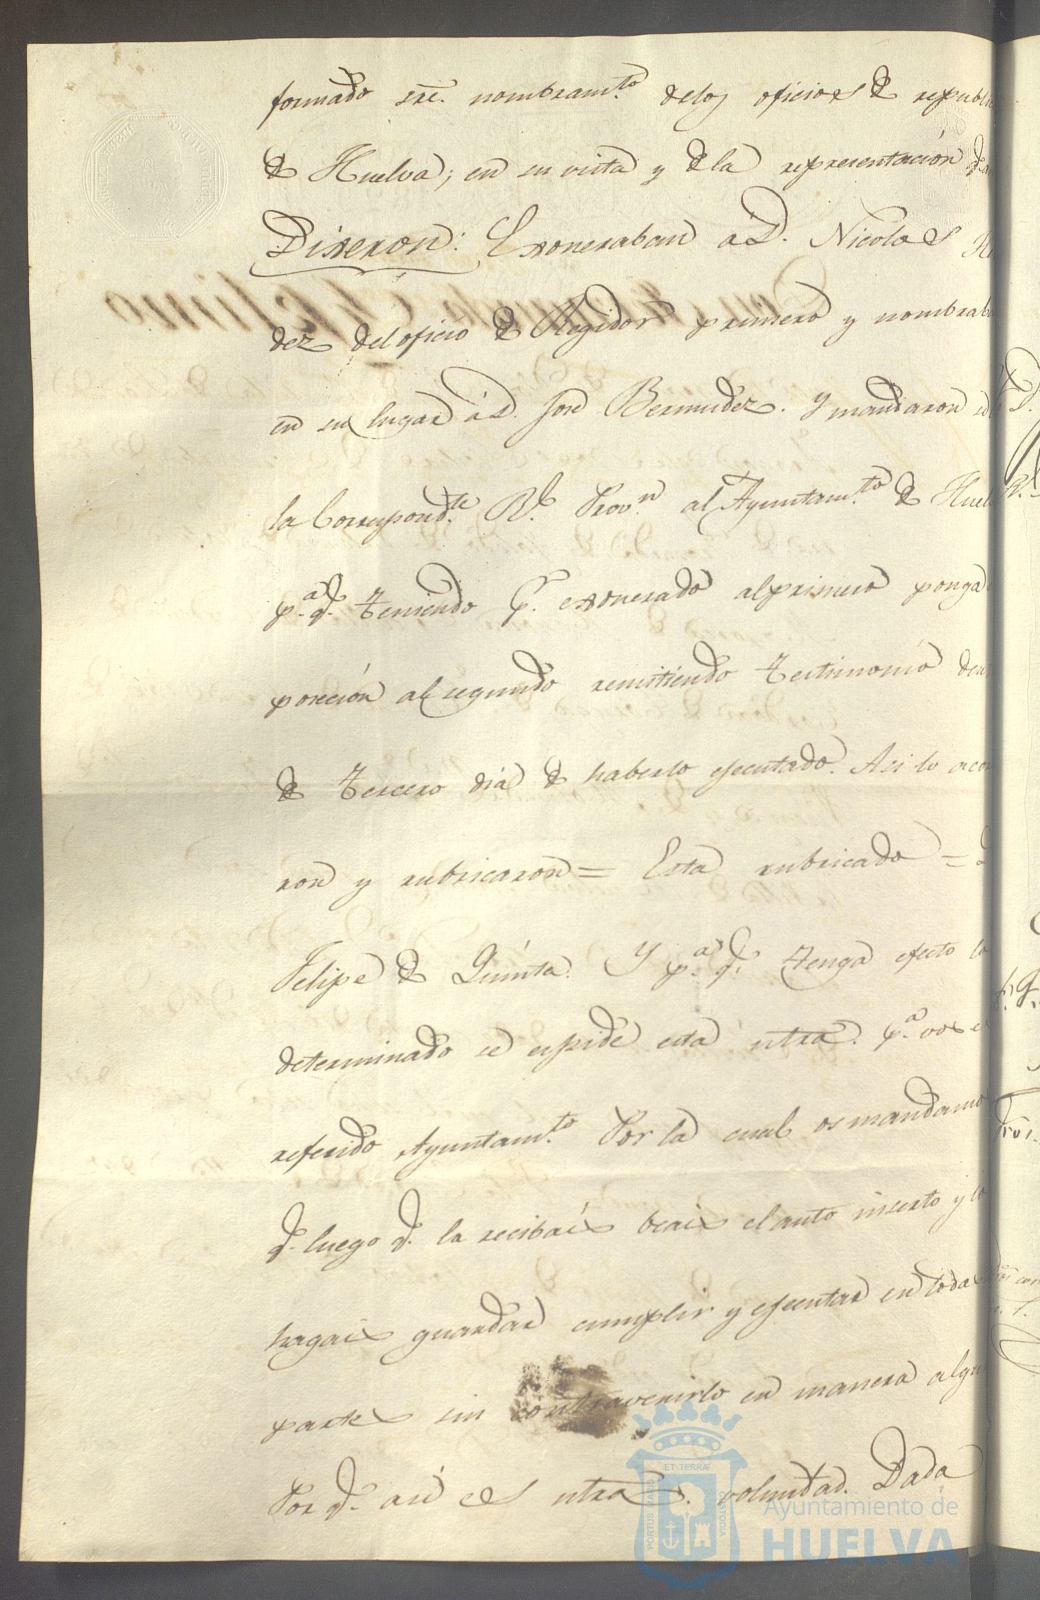 formado sre. nombramto. delos oficios de republi
de Huelva; en su vista y de la representación
Dixeron: Exoneraban á D. Nicolas
dez del oficio de Regidor primero y nombrab
en su lugar á D. José Bermudez. Y mandaron
la Correspondte. Rl. Provn. al Ayuntamto. de Huel
pa. q. teniendo pr. exonerado al primero ponga
poseción al segundo remitiendo testimonio den
de tercero dia de haberlo ejecutado. Asi lo acor
ron y rubricaron = Esta rubricado =
Felipe de Quinta. Y pa. q. tenga efecto lo
determinado se espide esta ntra. pa. vos el
referido Ayuntamto. Por la cual os mandamo
q. luego q. la recibais beais el auto inserto y lo
hagais guardar cumplir y ejecutar en todas
partes sin contravenirlo en manera algu
Por q. asi es ntra. voluntad. Dada
ET TERRAE
PORTUS MARIS
CUSTODIA
Ayuntamiento de
HUELVA